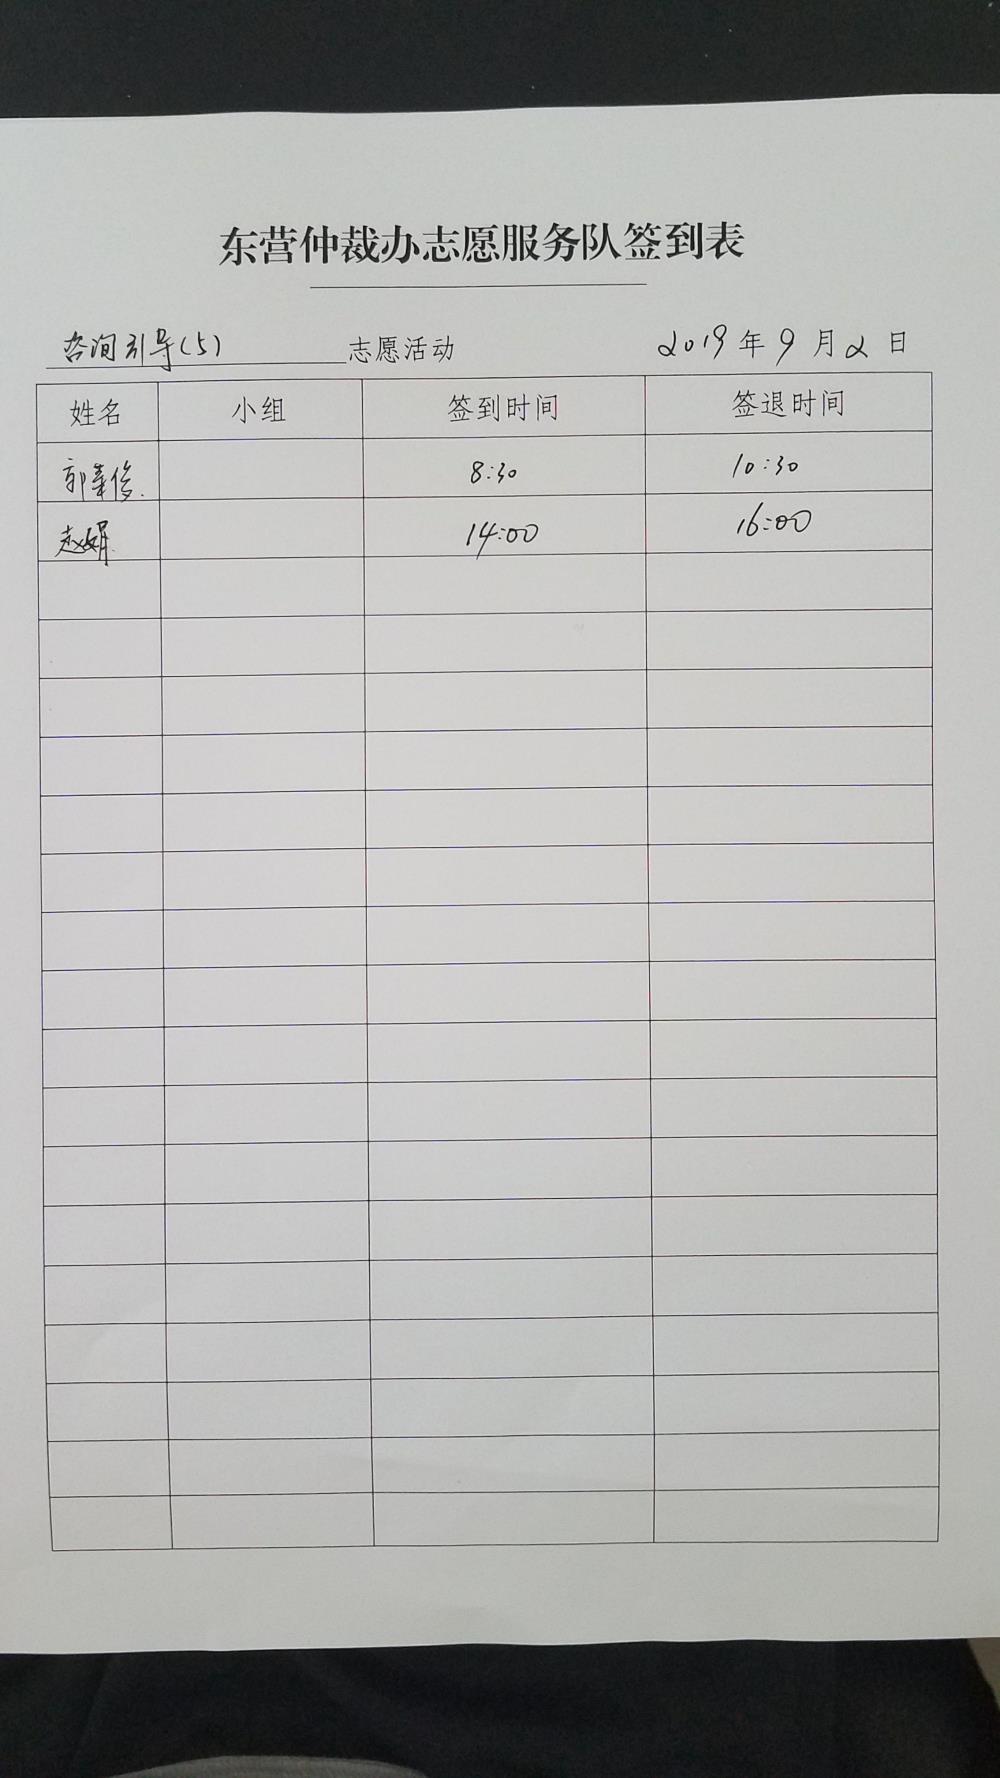 东营仲裁办志愿服务队签到表
咨询引导(5) 志愿活动 2019年9月2日
姓名 小组 签到时间 签退时间
郭 8:30 10:30
赵娟 14:00 16:00